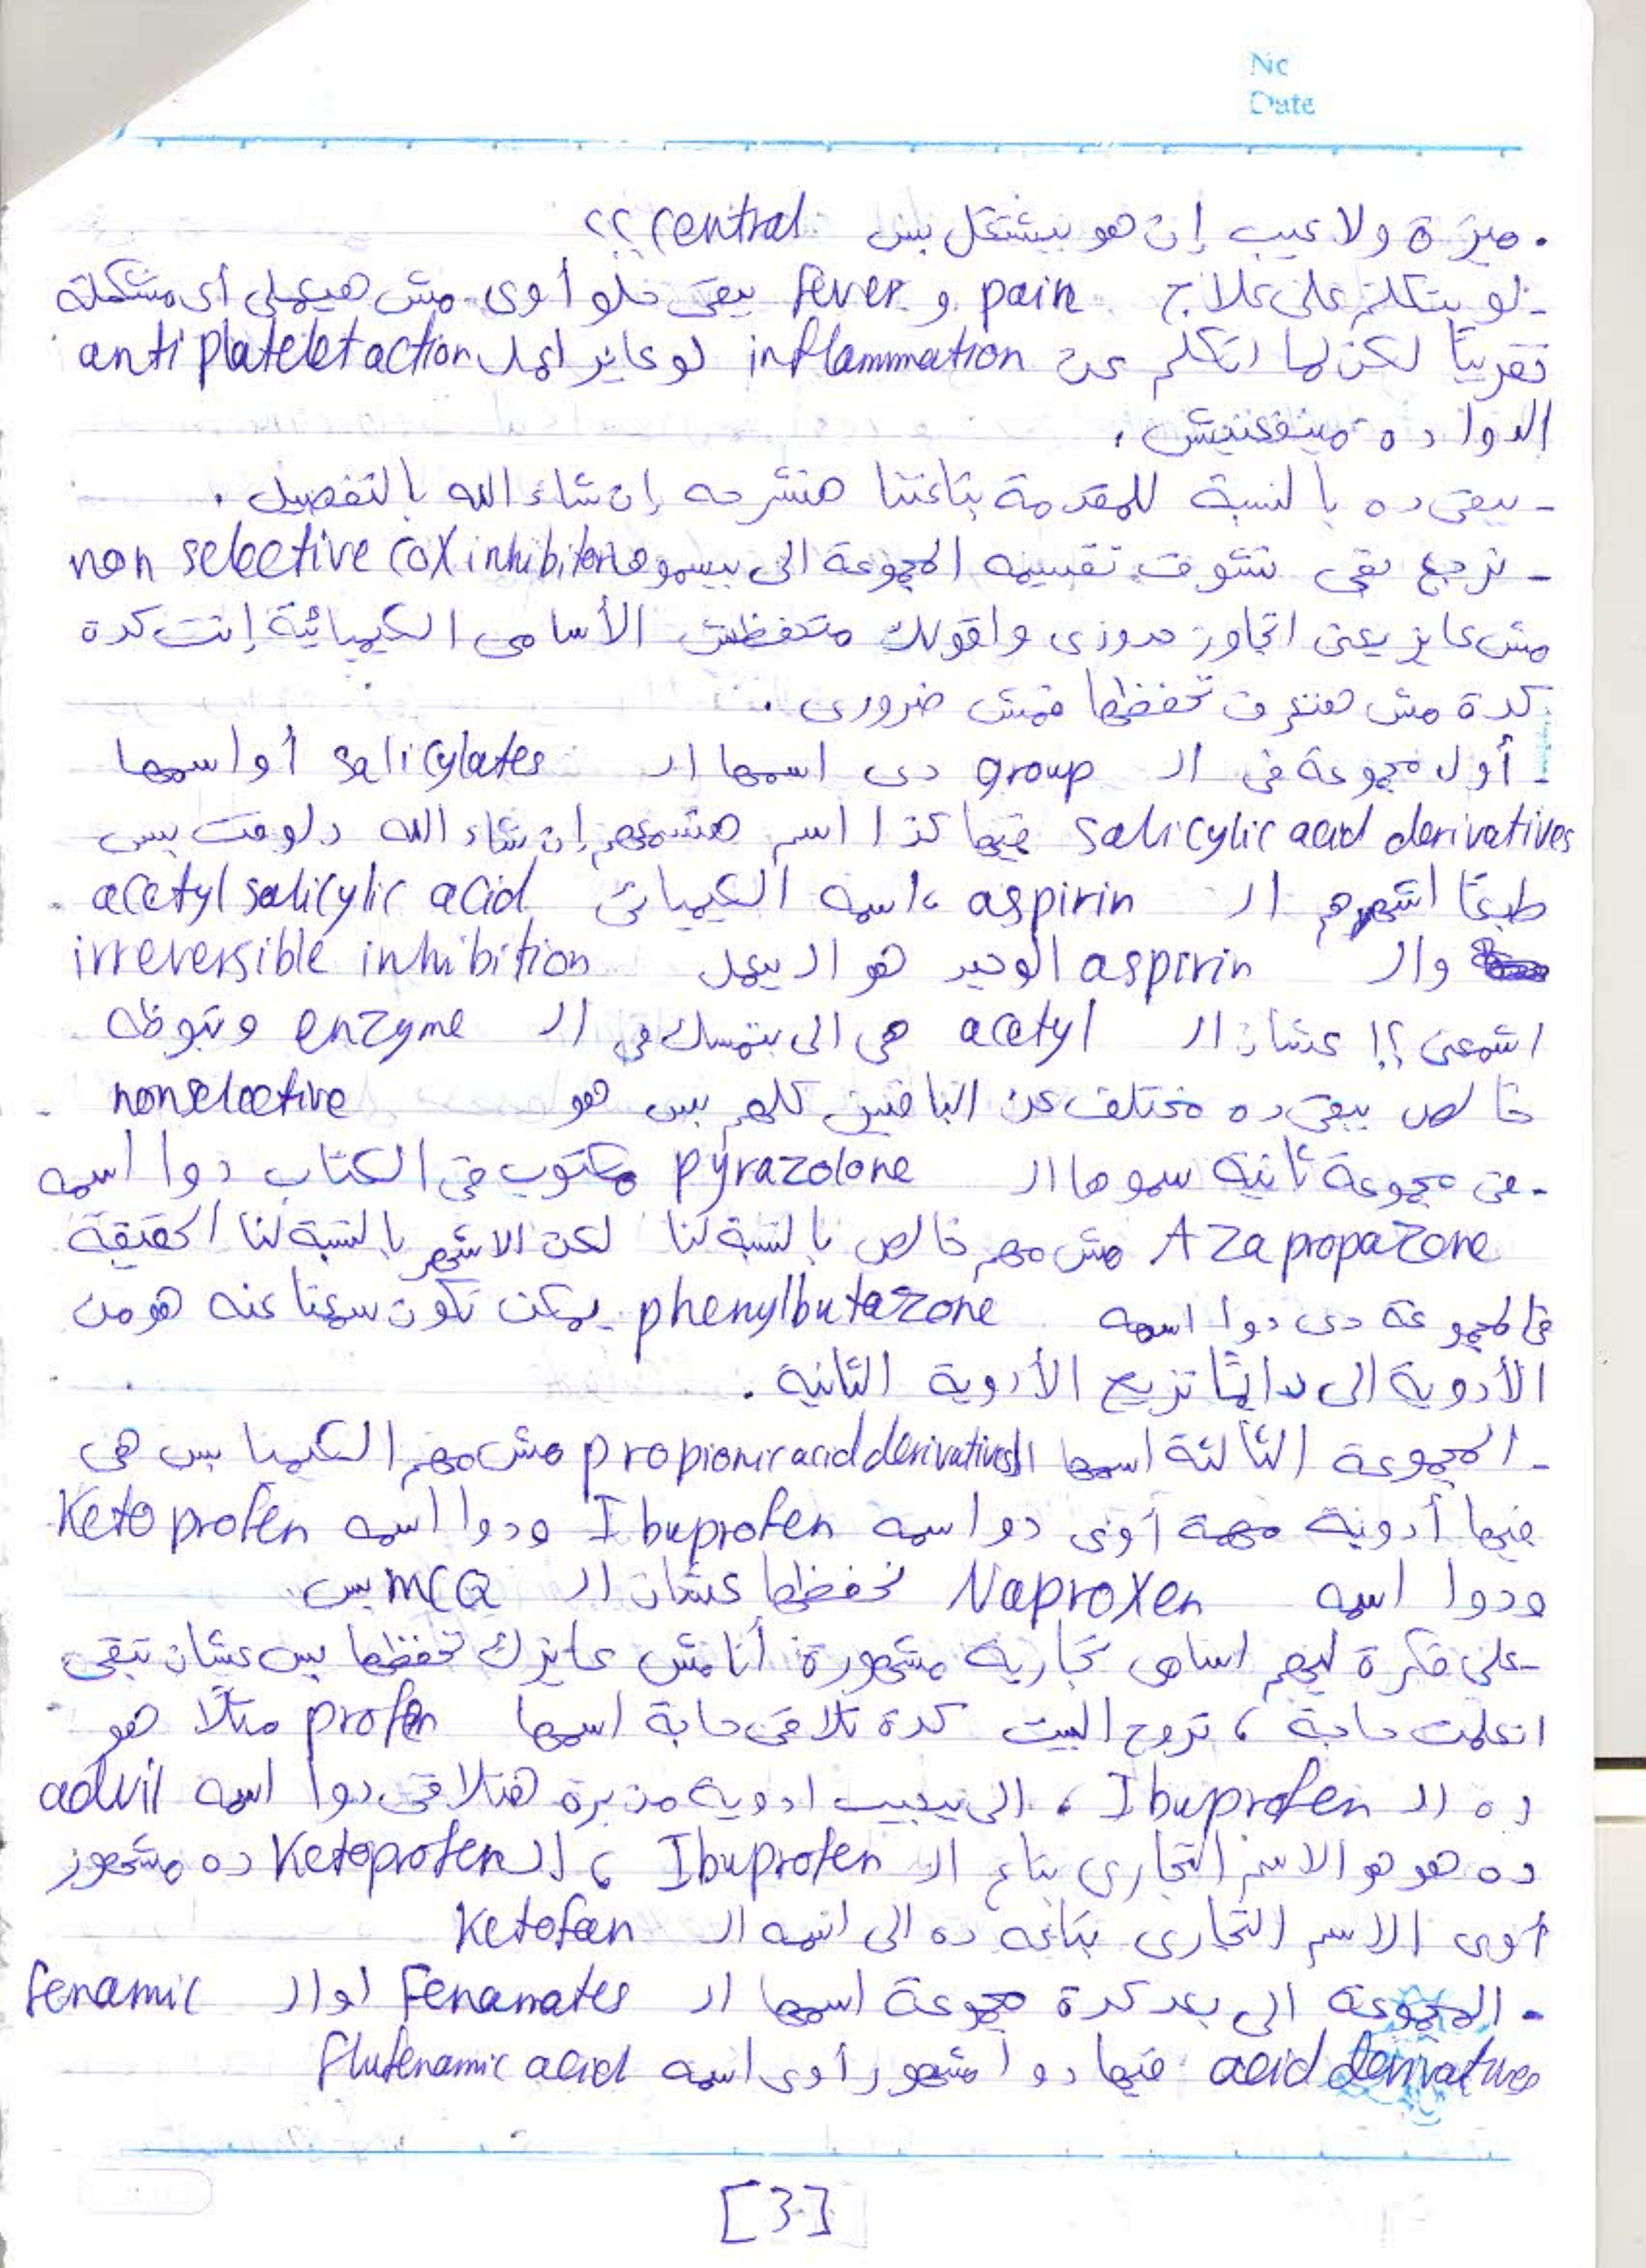 No
Date
. ميزة ولا عيب إن هو بيشتغل بس central ؟؟
- لو بتكلم على علاج pain و fever يبقى حلو أوى مش هيعملى أى مشكلة
تقريباً لكن لما اتكلم عن inflammation لو عايز اعمل antiplatelet action
الدوا ده مينفعنيش .
- يبقى ده بالنسبة للمقدمة بتاعتنا هنشرحه إن شاء الله بالتفصيل .
- نرجع بقى نشوف تقسيمه المجموعة الى بيسموها non selective cox inhibitors
مش عايز يعنى اتجاوز حدوزى واقولك متحفظش الأسامى الكيميائية إنت كدة
كدة مش هتعرف تحفظها فمش ضرورى .
- أول مجموعة فى الـ group دى اسمها الـ salicylates أو اسمها
salicylic acid derivatives فيها كذا اسم هنسمعهم إن شاء الله دلوقت بس
طبعًا اشهرهم الـ aspirin ، اسمه الكيميائى acetyl salicylic acid .
والـ aspirin الوحيد هو الـ بيعمل irreversible inhibition
اشمعنى ؟! عشان الـ acetyl هى الى بتمسك فى الـ enzyme وتبوظه
خالص يبقى ده مختلف عن الباقيين كلهم بس هو nonselective .
- فى مجموعة ثانية سموها الـ pyrazolone مكتوب فى الكتاب دوا اسمه
Azapropazone مش مهم خالص بالنسبة لنا لكن الاشهر بالنسبة لنا الحقيقة
فى المجموعة دى دوا اسمه phenylbutazone يمكن نكون سمعنا عنه هو من
الأدوية الى دايمًا تزيح الأدوية الثانية .
- المجموعة الثالثة اسمها الـ propionic acid derivatives مش مهم الكيميا بس هى
فيها أدوية مهمة أوى دوا اسمه Ibuprofen ودوا اسمه Ketoprofen
ودوا اسمه Naproxen نحفظها عشان الـ MCQ بس
- على فكرة ليهم اسامى تجارية مشهورة أنا مش عايزك تحفظها بس عشان تبقى
اتعلمت حاجة ، تروح البيت كدة تلاقى حاجة اسمها profen مثلًا هو
ده الـ Ibuprofen ، الى بيجيب ادوية من برة هتلاقى دوا اسمه advil
ده هو هو الاسم التجارى بتاع الـ Ibuprofen ، الـ Ketoprofen ده مشهور
أوى الاسم التجارى بتاعه ده الى اسمه الـ Ketofan
- المجموعة الى بعد كدة مجموعة اسمها الـ Fenamates أو الـ fenamic
acid derivatives فيها دوا مشهور أوى اسمه flufenamic acid
[3]